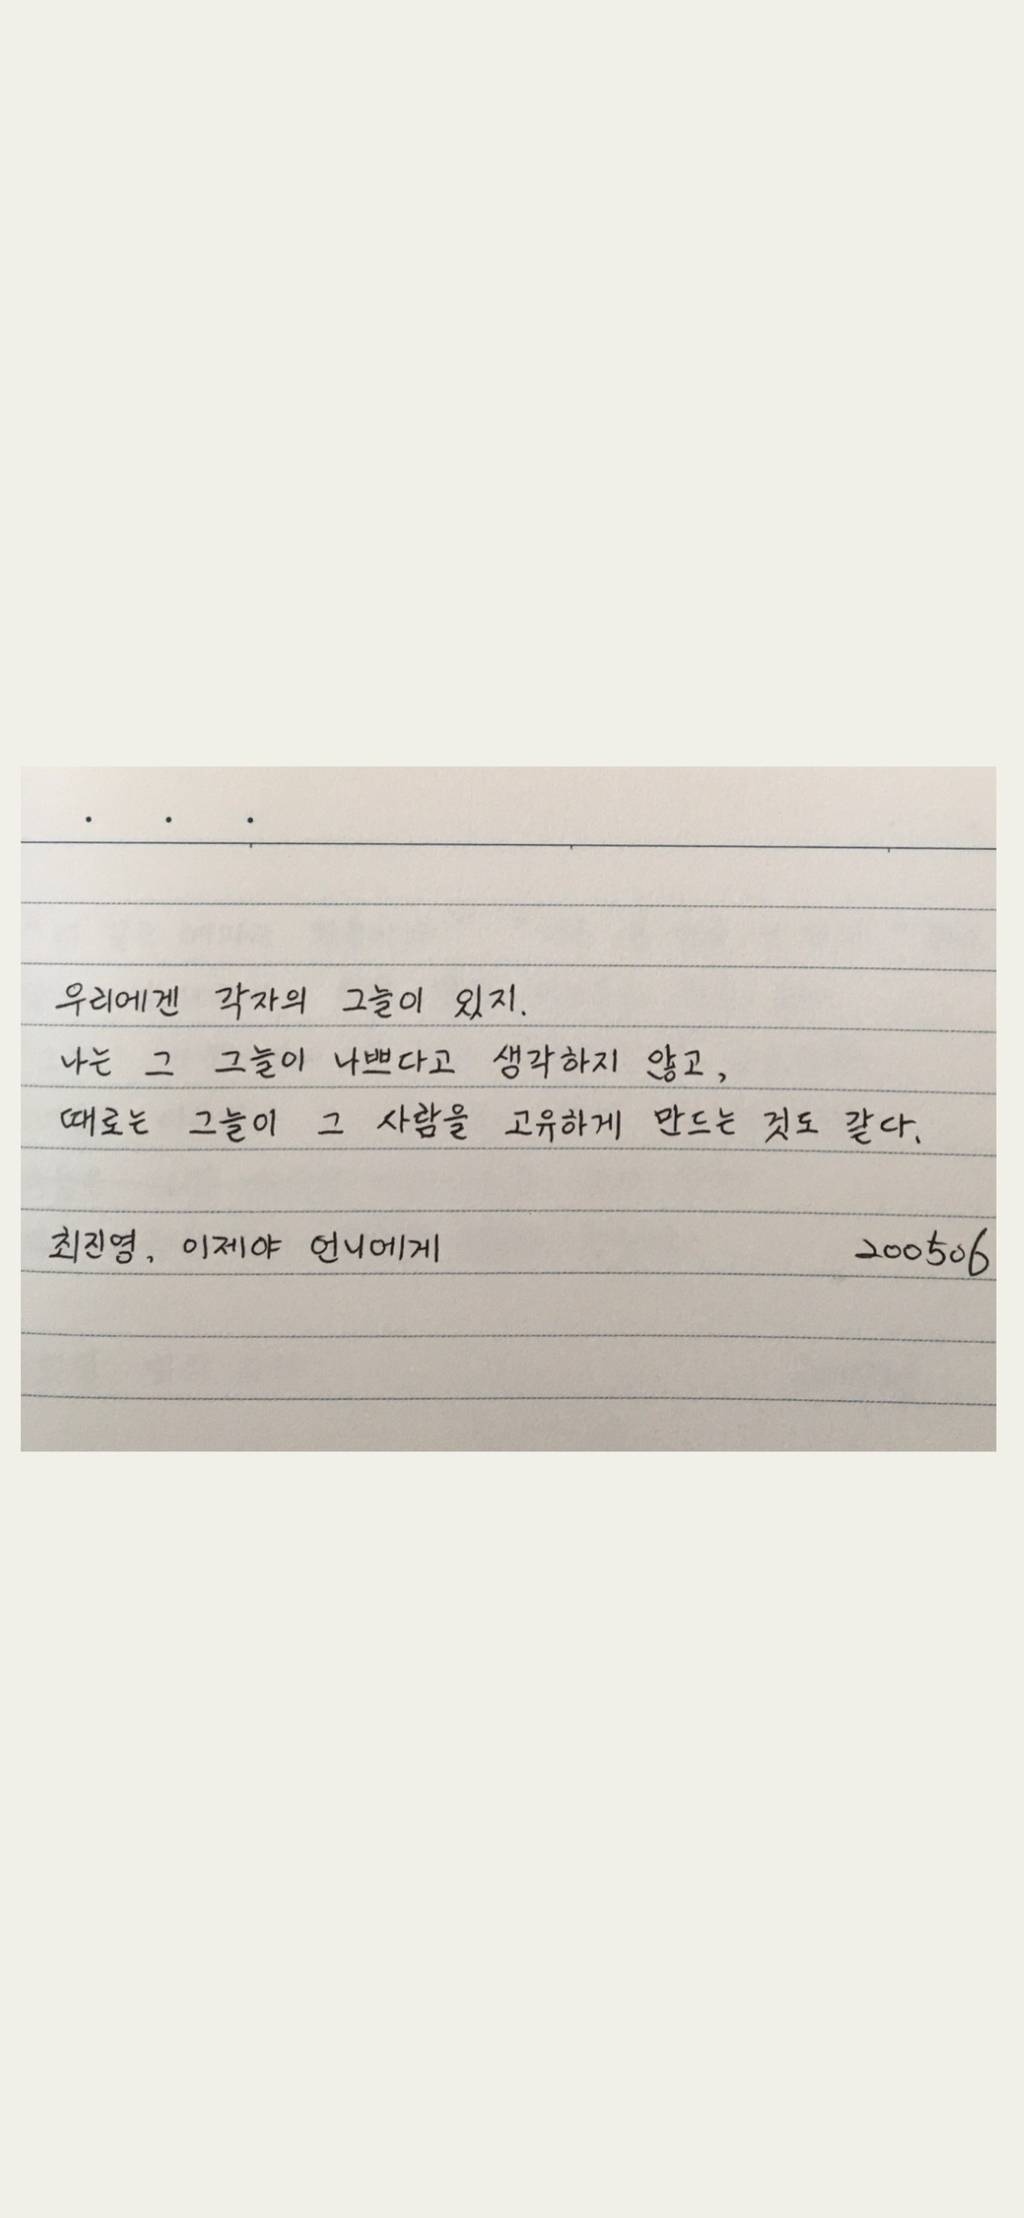 우리에겐 각자의 그늘이 있지.
나는 그 그늘이 나쁘다고 생각하지 않고,
때로는 그늘이 그 사람을 고유하게 만드는 것도 같다.
최진영, 이제야 언니에게 200506